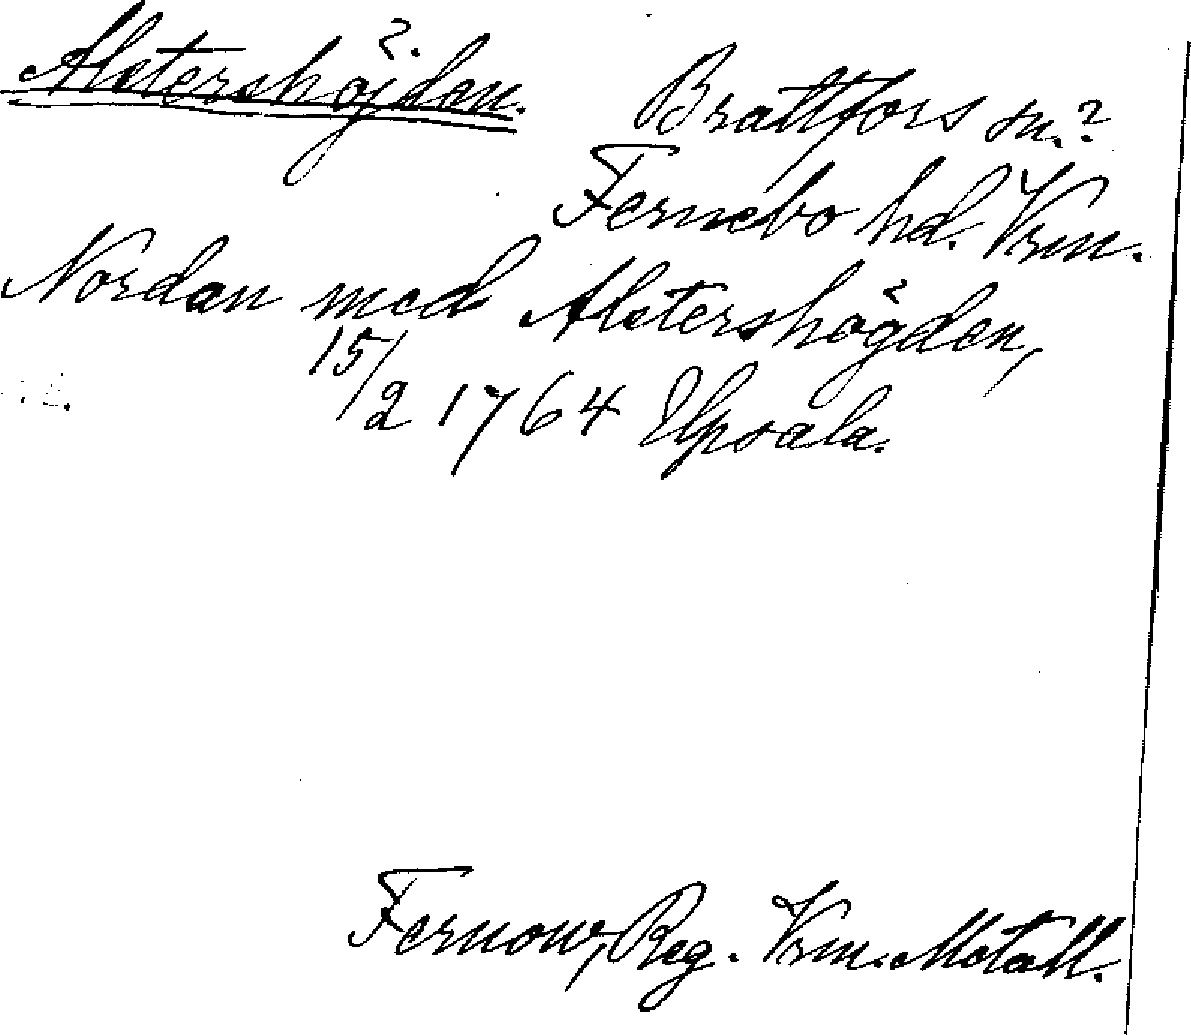 Alstershöjden. ? Brattfors sn.?
Fernebo hd. Vrm.
Nordan med Alstershögden,
15/2 1764 Upsala.
Fernow, Reg. Vrm. Metall.